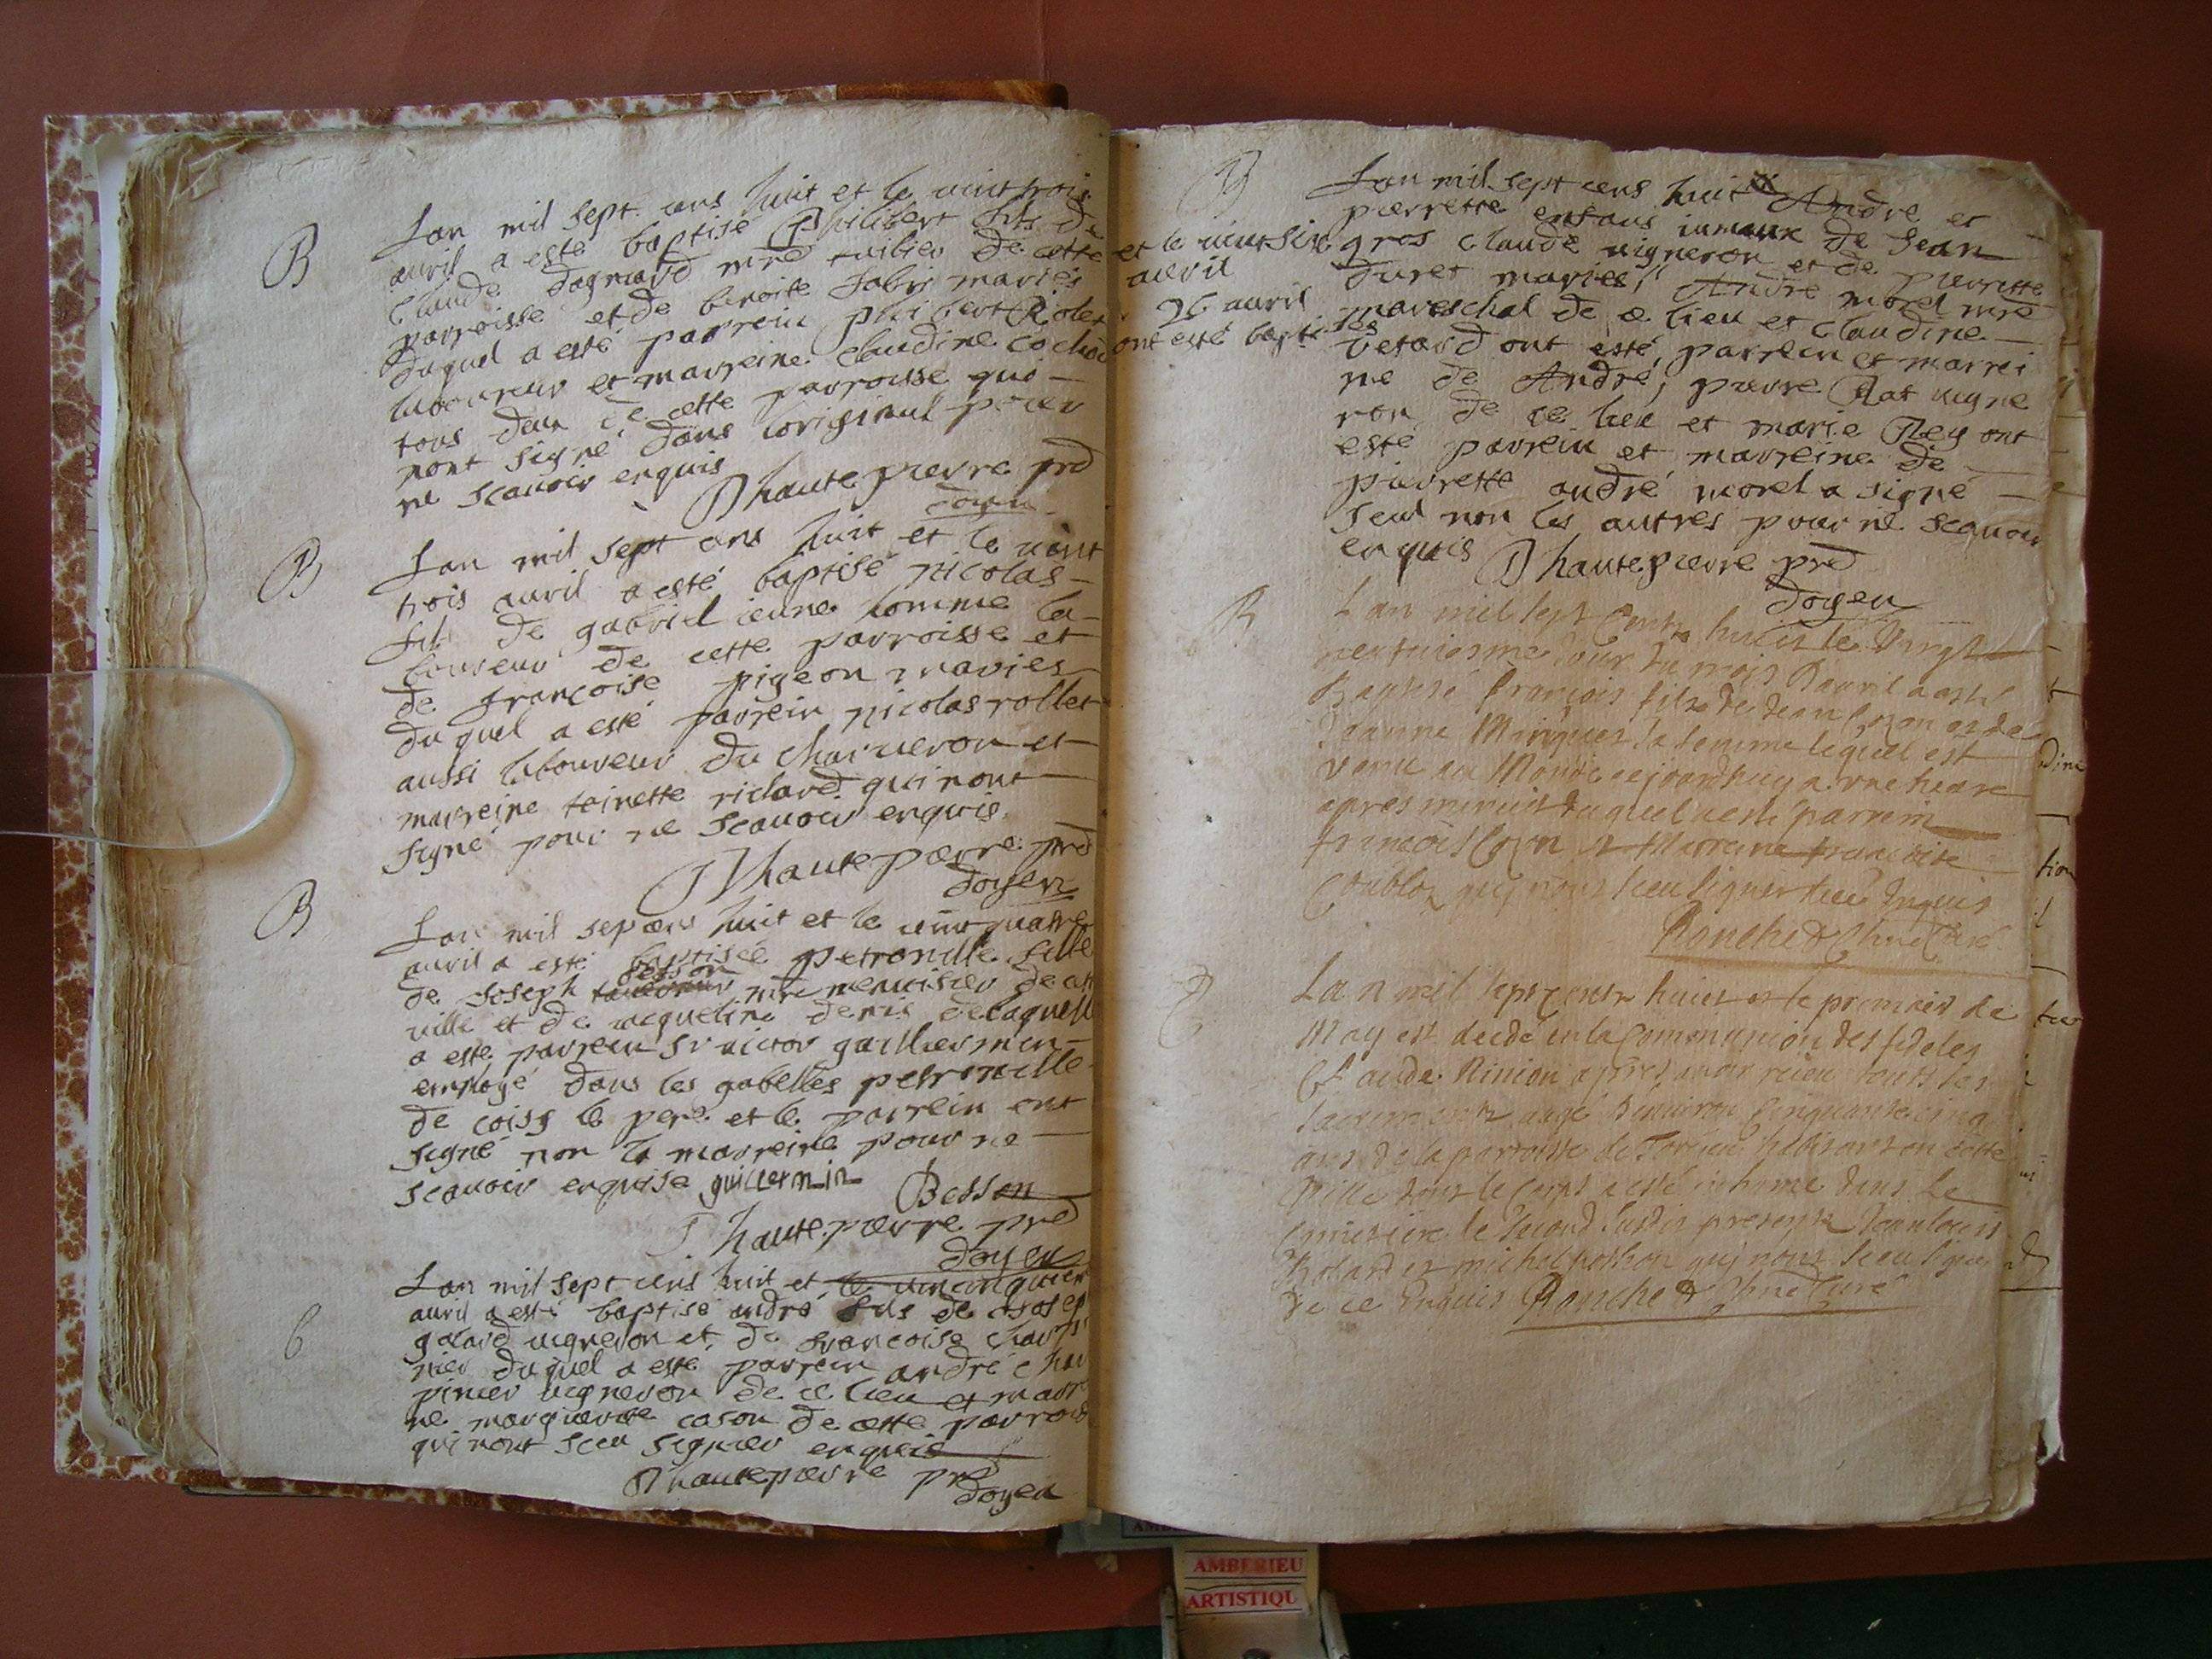 B
Lan mil sept cens huit et le vint trois
auril a esté baptisé Philibert fils de
Claude dagniard mre tuilier de cette
parroisse et de benoite fabry mariés
duquel a esté parrein philibert Rolet
laboureur et marreine Claudine cochod
tous deux de cette parroisse qui
nont signé dans loriginal pour
ne scauoir enquis
Dhautepierre prd
doyen
B
Lan mil sept cens huit et le vint
trois auril a esté baptisé nicolas
fils de gabriel ieune homme la-
boureur de cette parroisse et
de francoise pigeon mariés
duquel a esté parrein nicolas rollet
aussi laboureur du charueron et
marreine toinette richard qui nont
signé pour ne scauoir enquis
Dhautepierre prd
doyen
B
Lan mil sep cens huit et le vint quatre
auril a esté baptisée petronille fille
de Joseph besson mre menuisier de cette
ville et de iacqueline denis delaquelle
a esté parrein sr victor guilliermin
employé dans les gabelles petronille
de coisy le pere et le parrein ont
signé non la marreine pour ne
scauoir enquise guillermin Besson
Dhautepierre prd
doyen
b
Lan mil sept cens huit et le vincinquiem
auril a esté baptisé andré fils de Josep
galard vigneron et de francoise charpi
nier duquel a esté parrein andré char
pinier vigneron de ce lieu et marre
ne marguerite coson de cette parrois
qui nont sceu signer enquis
Dhautepierre prd
doyen
B
Lan mil sept cens huit Andre et
et le vint six
auril
26 auril
ont esté baptisés
pierrette enfans iumaux de Jean
gros Claude vigneron et de pierrette
duret mariés, André morel mre
mareschal de ce lieu et Claudine
betard ont esté parrein et marrei
ne de André, pierre Rat vigne
ron de ce lieu et marie Rey ont
esté parrein et marreine de
pierrette andré morel a signé
seul non les autres pour ne scauoir
enquis Dhautepierre prd
doyen
B
Lan mil sept cents huict le Vingt
neufuiesme Jour du mois dauril a esté
Baptisé François filz de Jean Cozon et de
Jeanne Minguet sa femme lequel est
venu au Monde aujourdhuy a vne heure
apres minuit duquel a esté parrein
francois Cozon et Marreine francoise
qui nont sceu signer de ce Enquis
Ronchet Curé
Lan mil sept cents huict et le premier de
May est decedé en la Communion des fideles
Claude Ninion apres auoir receu touts les
sacrements aagé denuiron Cinquante cinq
ans de la parroisse de Torcieu habitant en cette
Ville dont le corps a esté inhumé dans le
Cimetiere le second susdit presents Jean louis
Bolard et michel qui nont sceu signer
de ce Enquis Ronchet Curé
AMBERIEU
ARTISTIQU